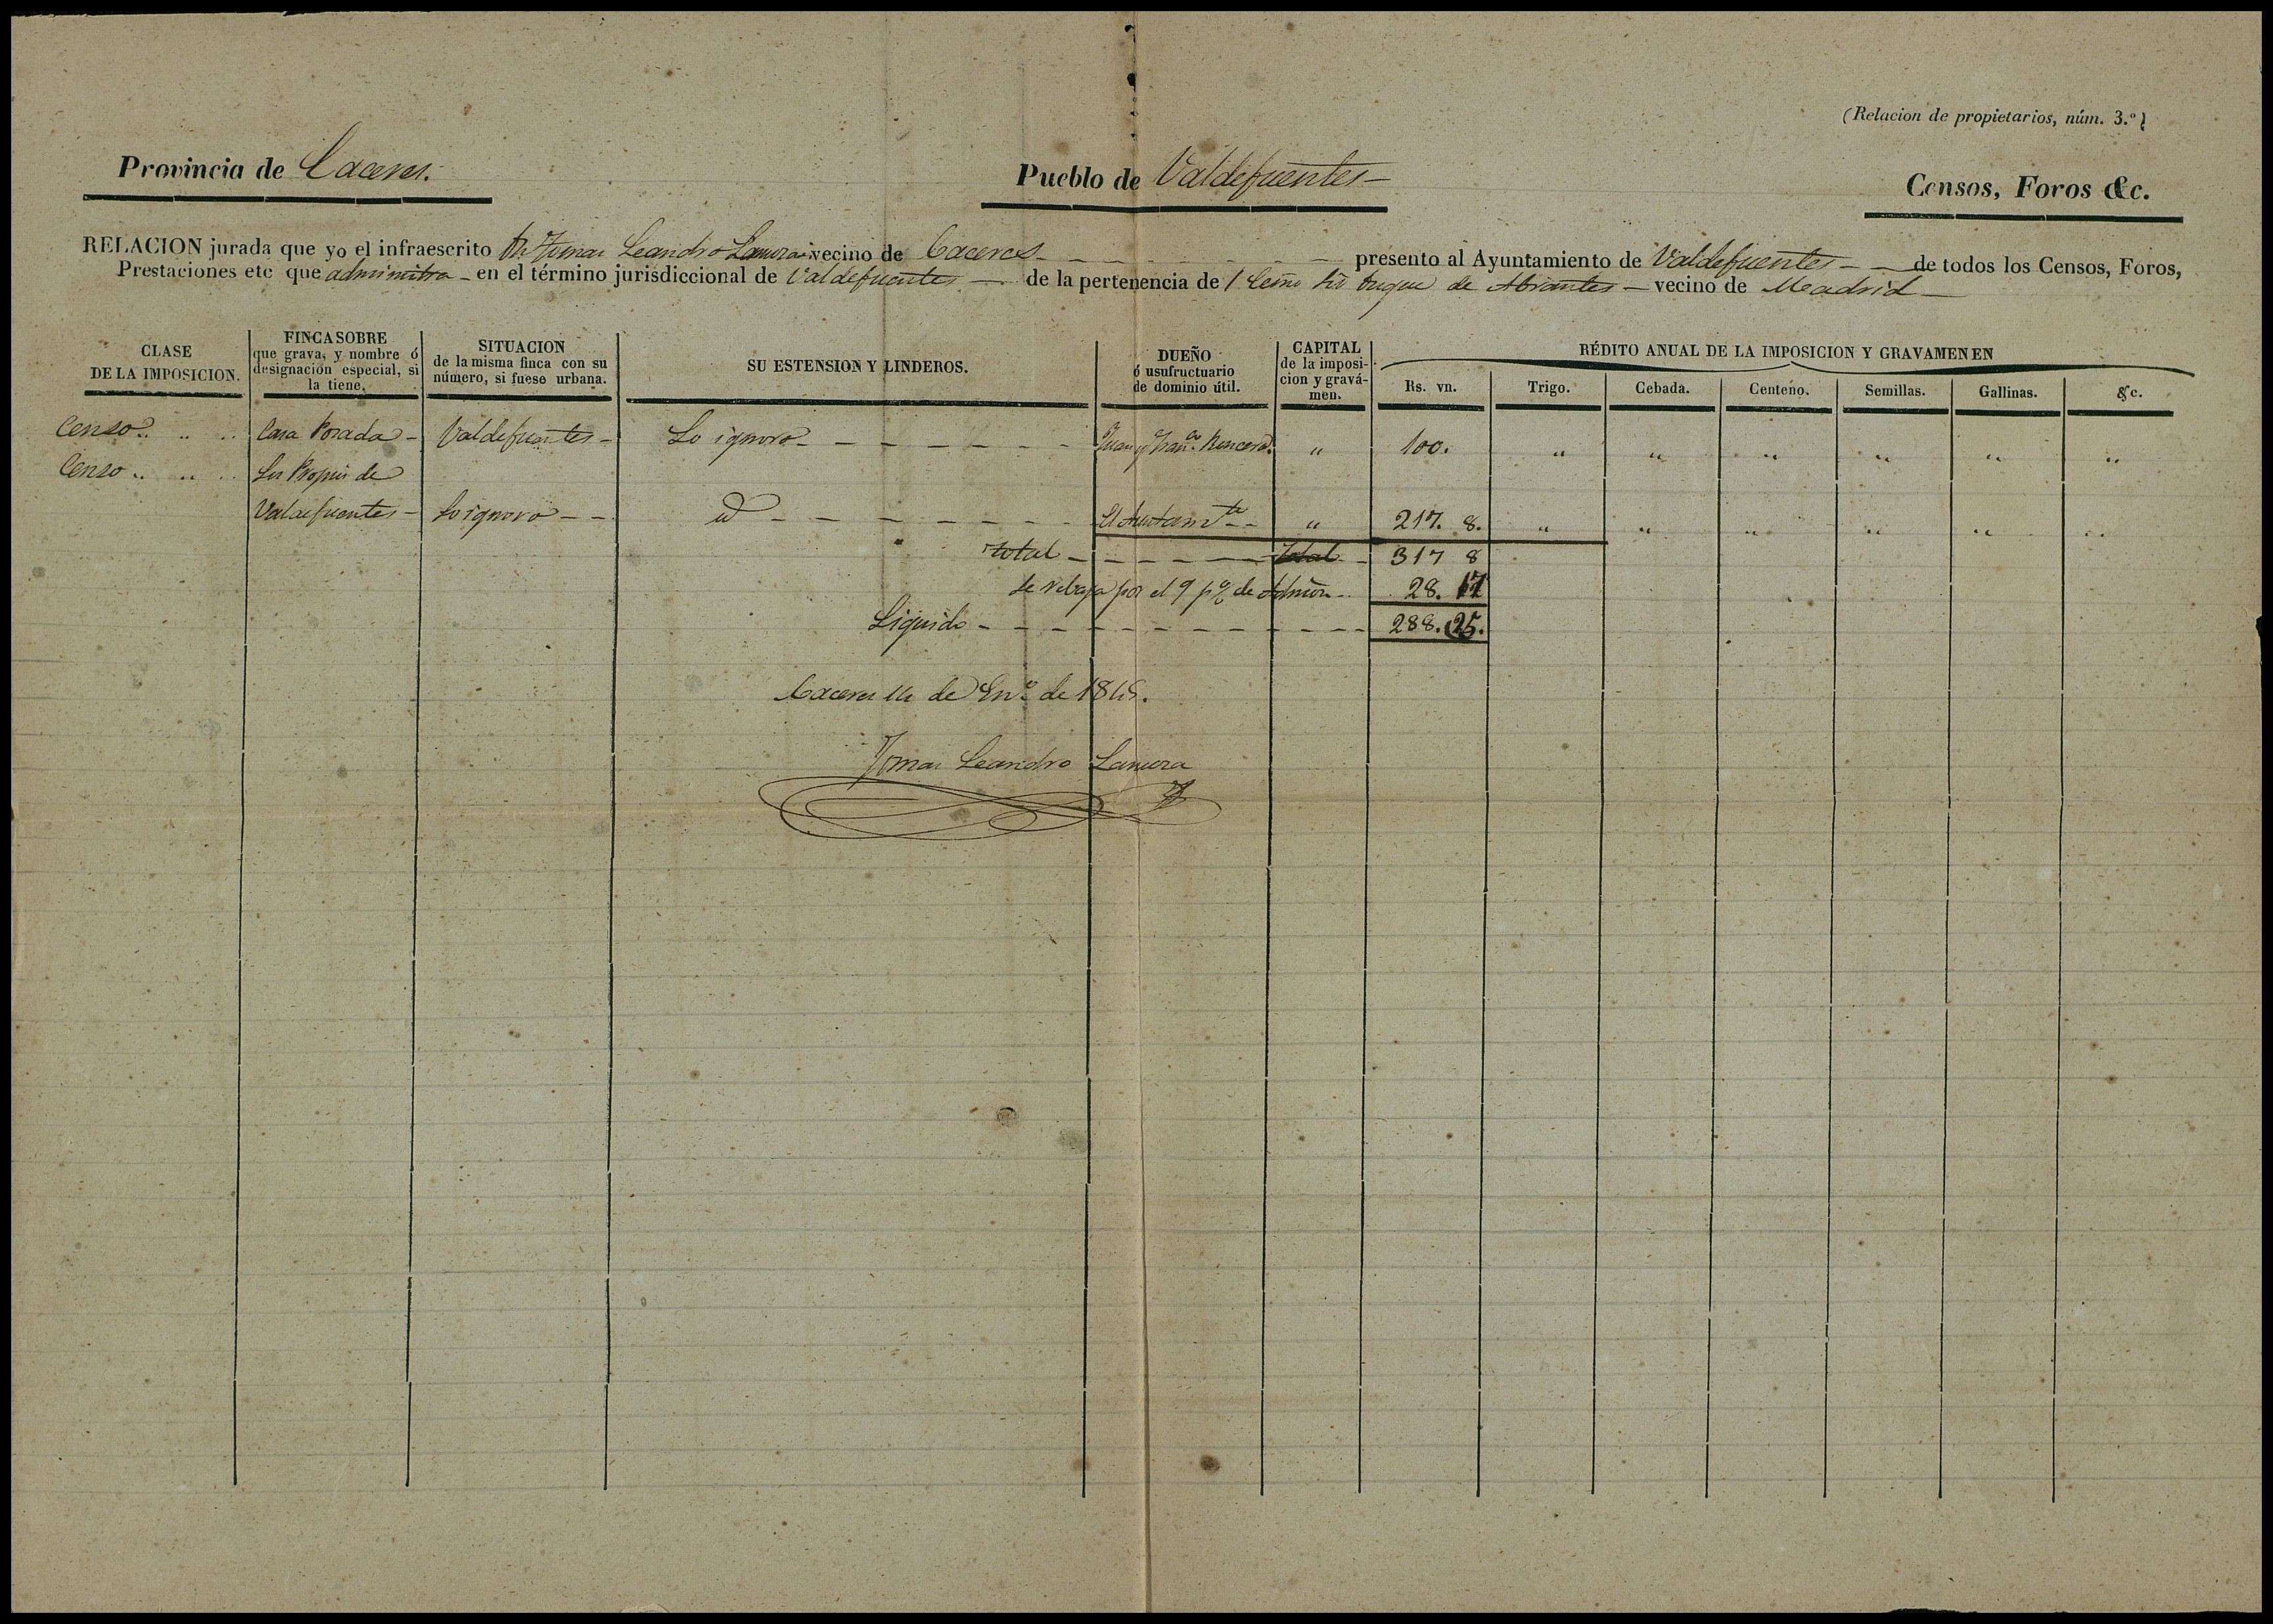 (Relacion de propietarios, núm. 3.º)
Provincia de Caceres.
Pueblo de Valdefuentes
Censos, Foros &c.
RELACION jurada que yo el infraescrito Dn Tomas Leandro Lamora vecino de Caceres presento al Ayuntamiento de Valdefuentes de todos los Censos, Foros,
Prestaciones etc que administra en el término jurisdiccional de Valdefuentes de la pertenencia de Duque de Abrantes vecino de Madrid
CLASE
DE LA IMPOSICION.
FINCA SOBRE
que grava, y nombre ó
designacion especial, si
la tiene.
SITUACION
de la misma finca con su
número, si fuese urbana.
SU ESTENSION Y LINDEROS.
DUEÑO
ó usufructuario
de dominio útil.
CAPITAL
de la imposi-
cion y gravá-
men.
RÉDITO ANUAL DE LA IMPOSICION Y GRAVAMEN EN
Rs. vn. Trigo. Cebada. Centeno. Semillas. Gallinas. &c.
Censo .. .. .. Casa Posada Valdefuentes Lo ignoro Juan y Franco " 100. " " " " " "
Censo .. .. .. Los Propios de
Valdefuentes Lo ignoro id El Ayuntamto " 217. 8. " " " " " "
total total 317 8
Se rebaja por el 9 p% de Admon 28. 17
Liquido 288. 25.
Caceres de Eno de
Tomas Leandro Lamora